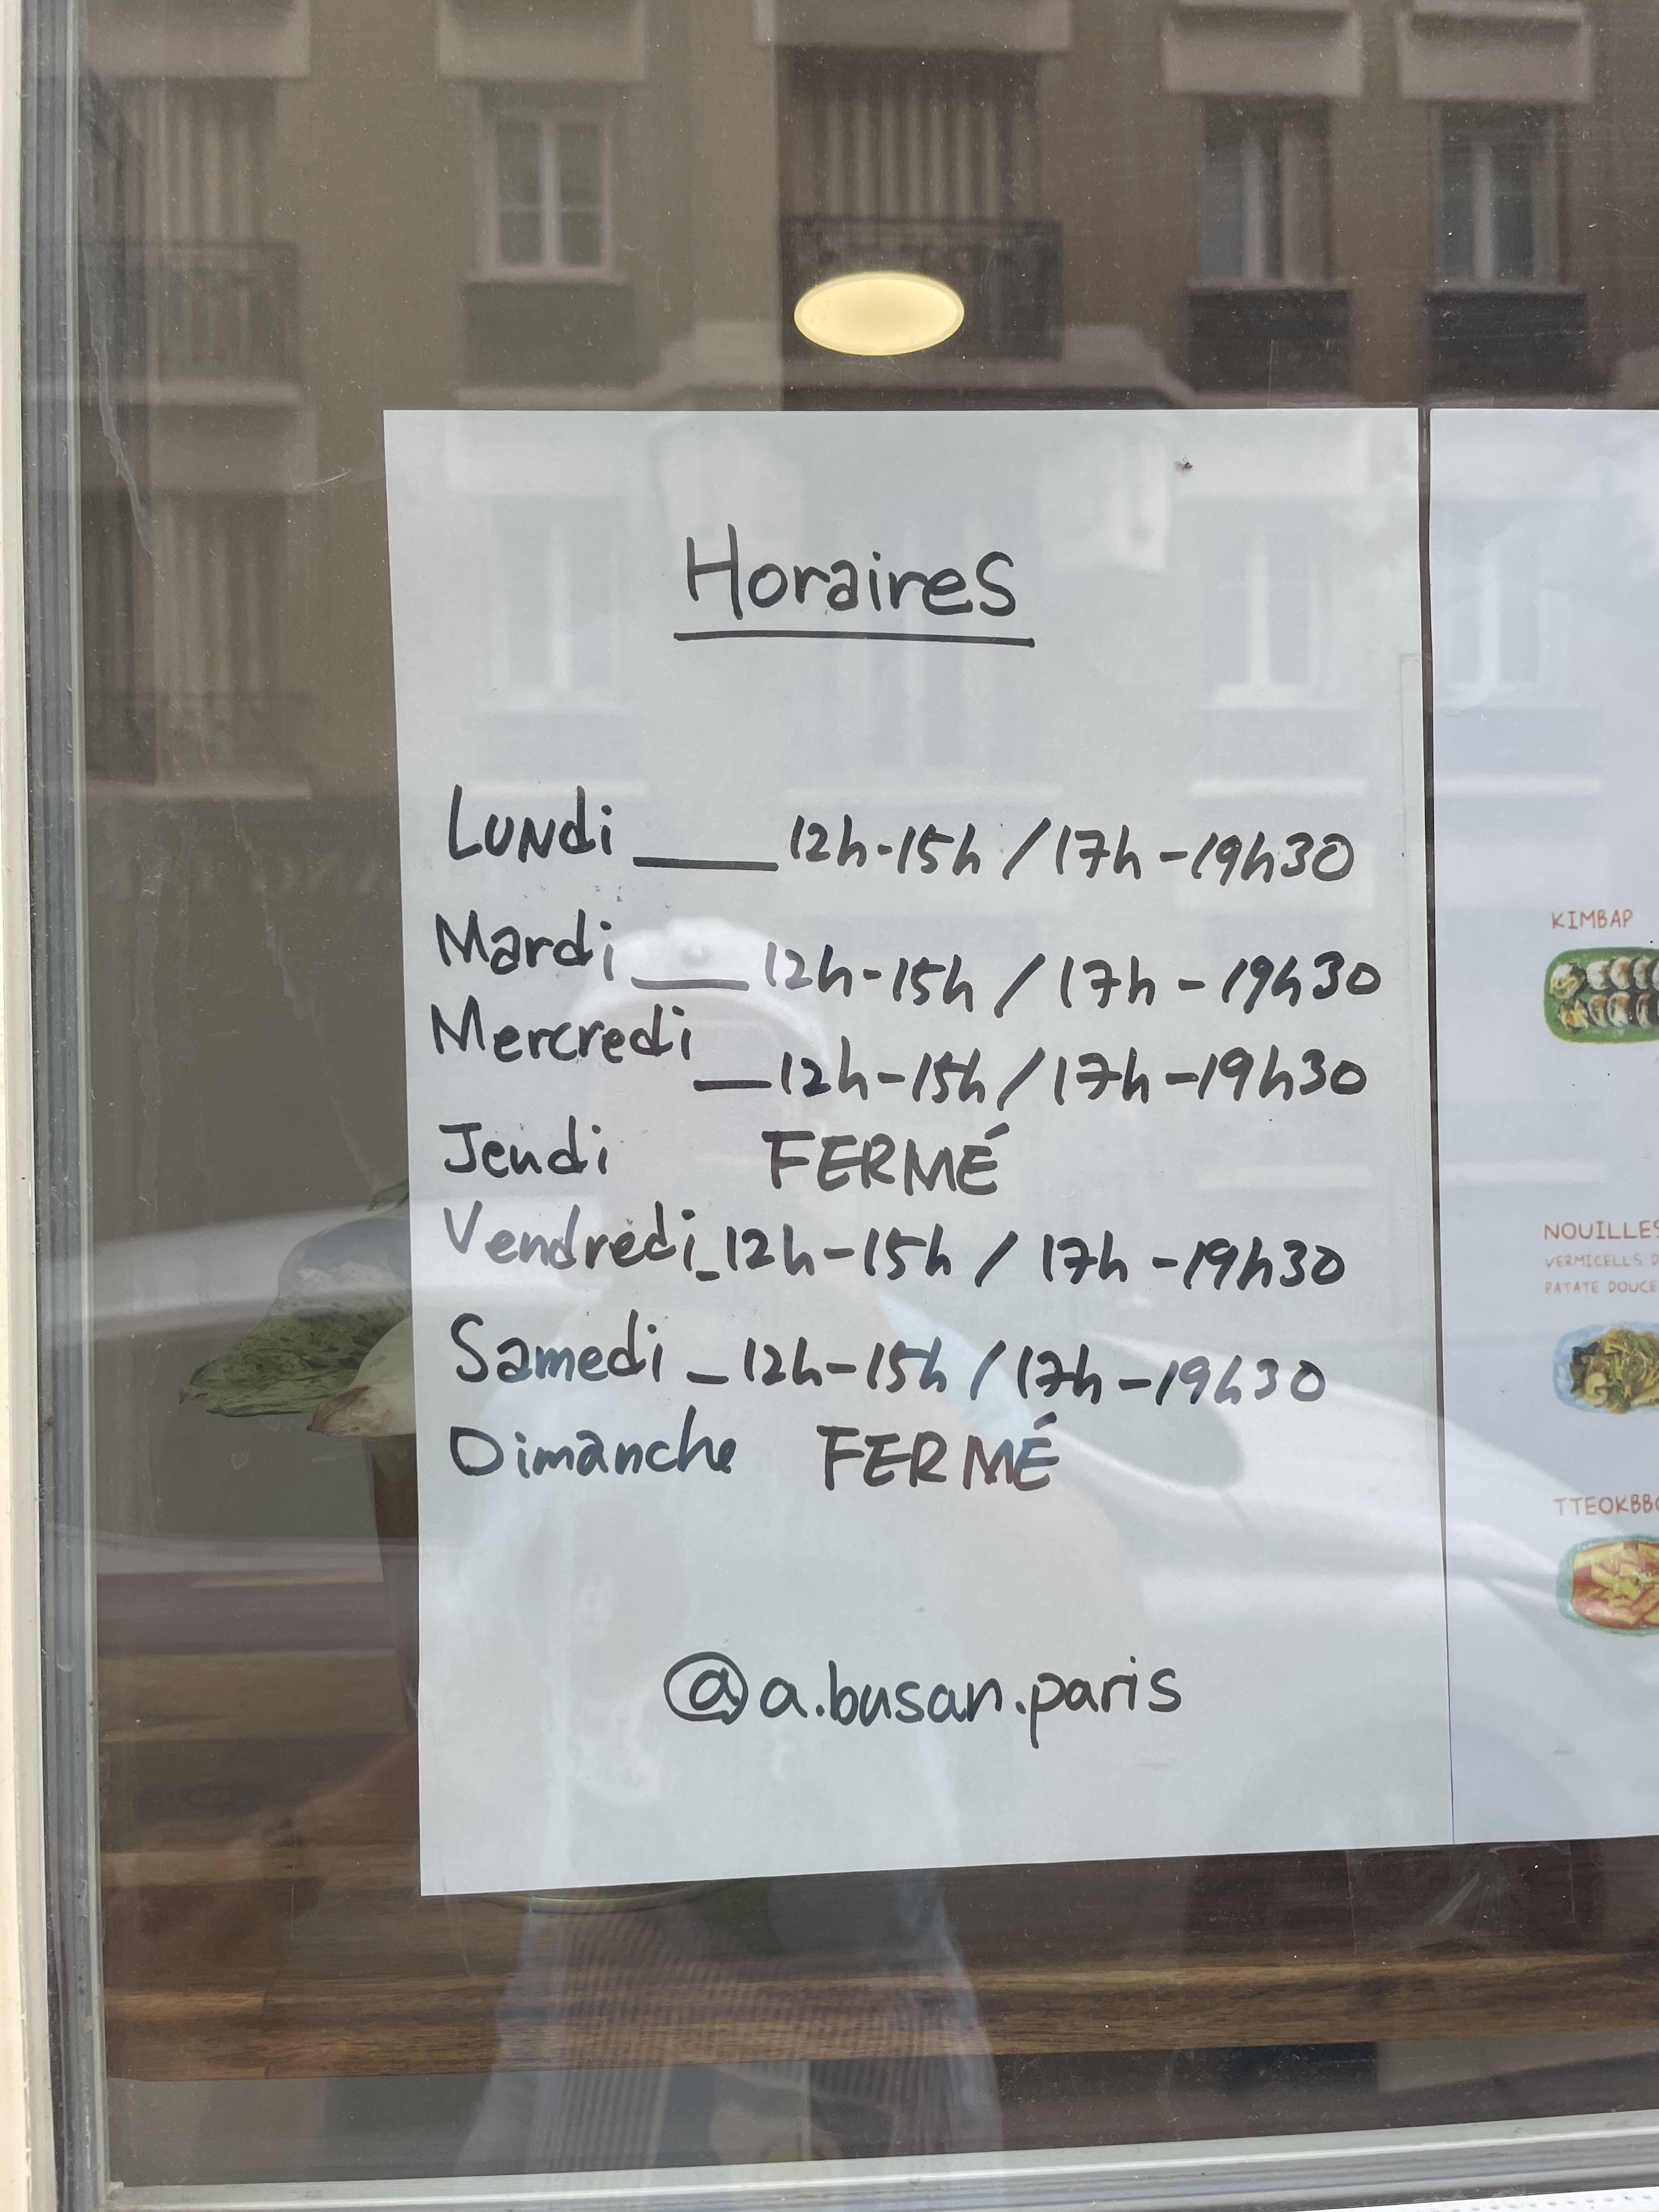 Horaires
Lundi ___ 12h-15h / 17h-19h30
Mardi ___ 12h-15h / 17h-19h30
Mercredi __ 12h-15h / 17h-19h30
Jeudi FERMÉ
Vendredi _ 12h-15h / 17h-19h30
Samedi _ 12h-15h / 17h-19h30
Dimanche FERMÉ
@a.busan.paris
KIMBAP
NOUILLES
VERMICELLS
PATATE DOUCE